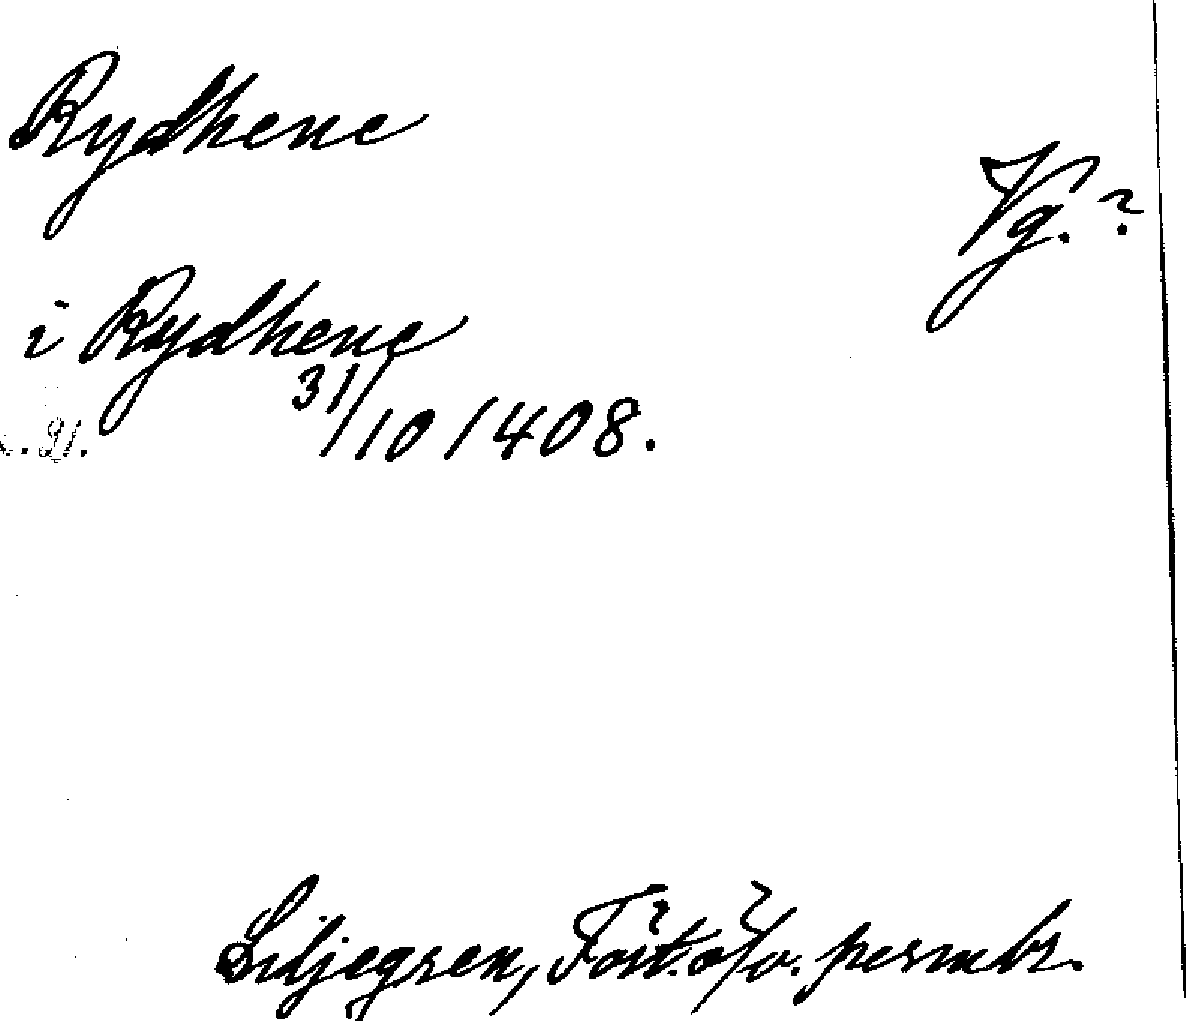 Rydhene
Vg. ?
i Rydhene
31/10 1408.
Liljegren, Fört. ö/v. permbr.